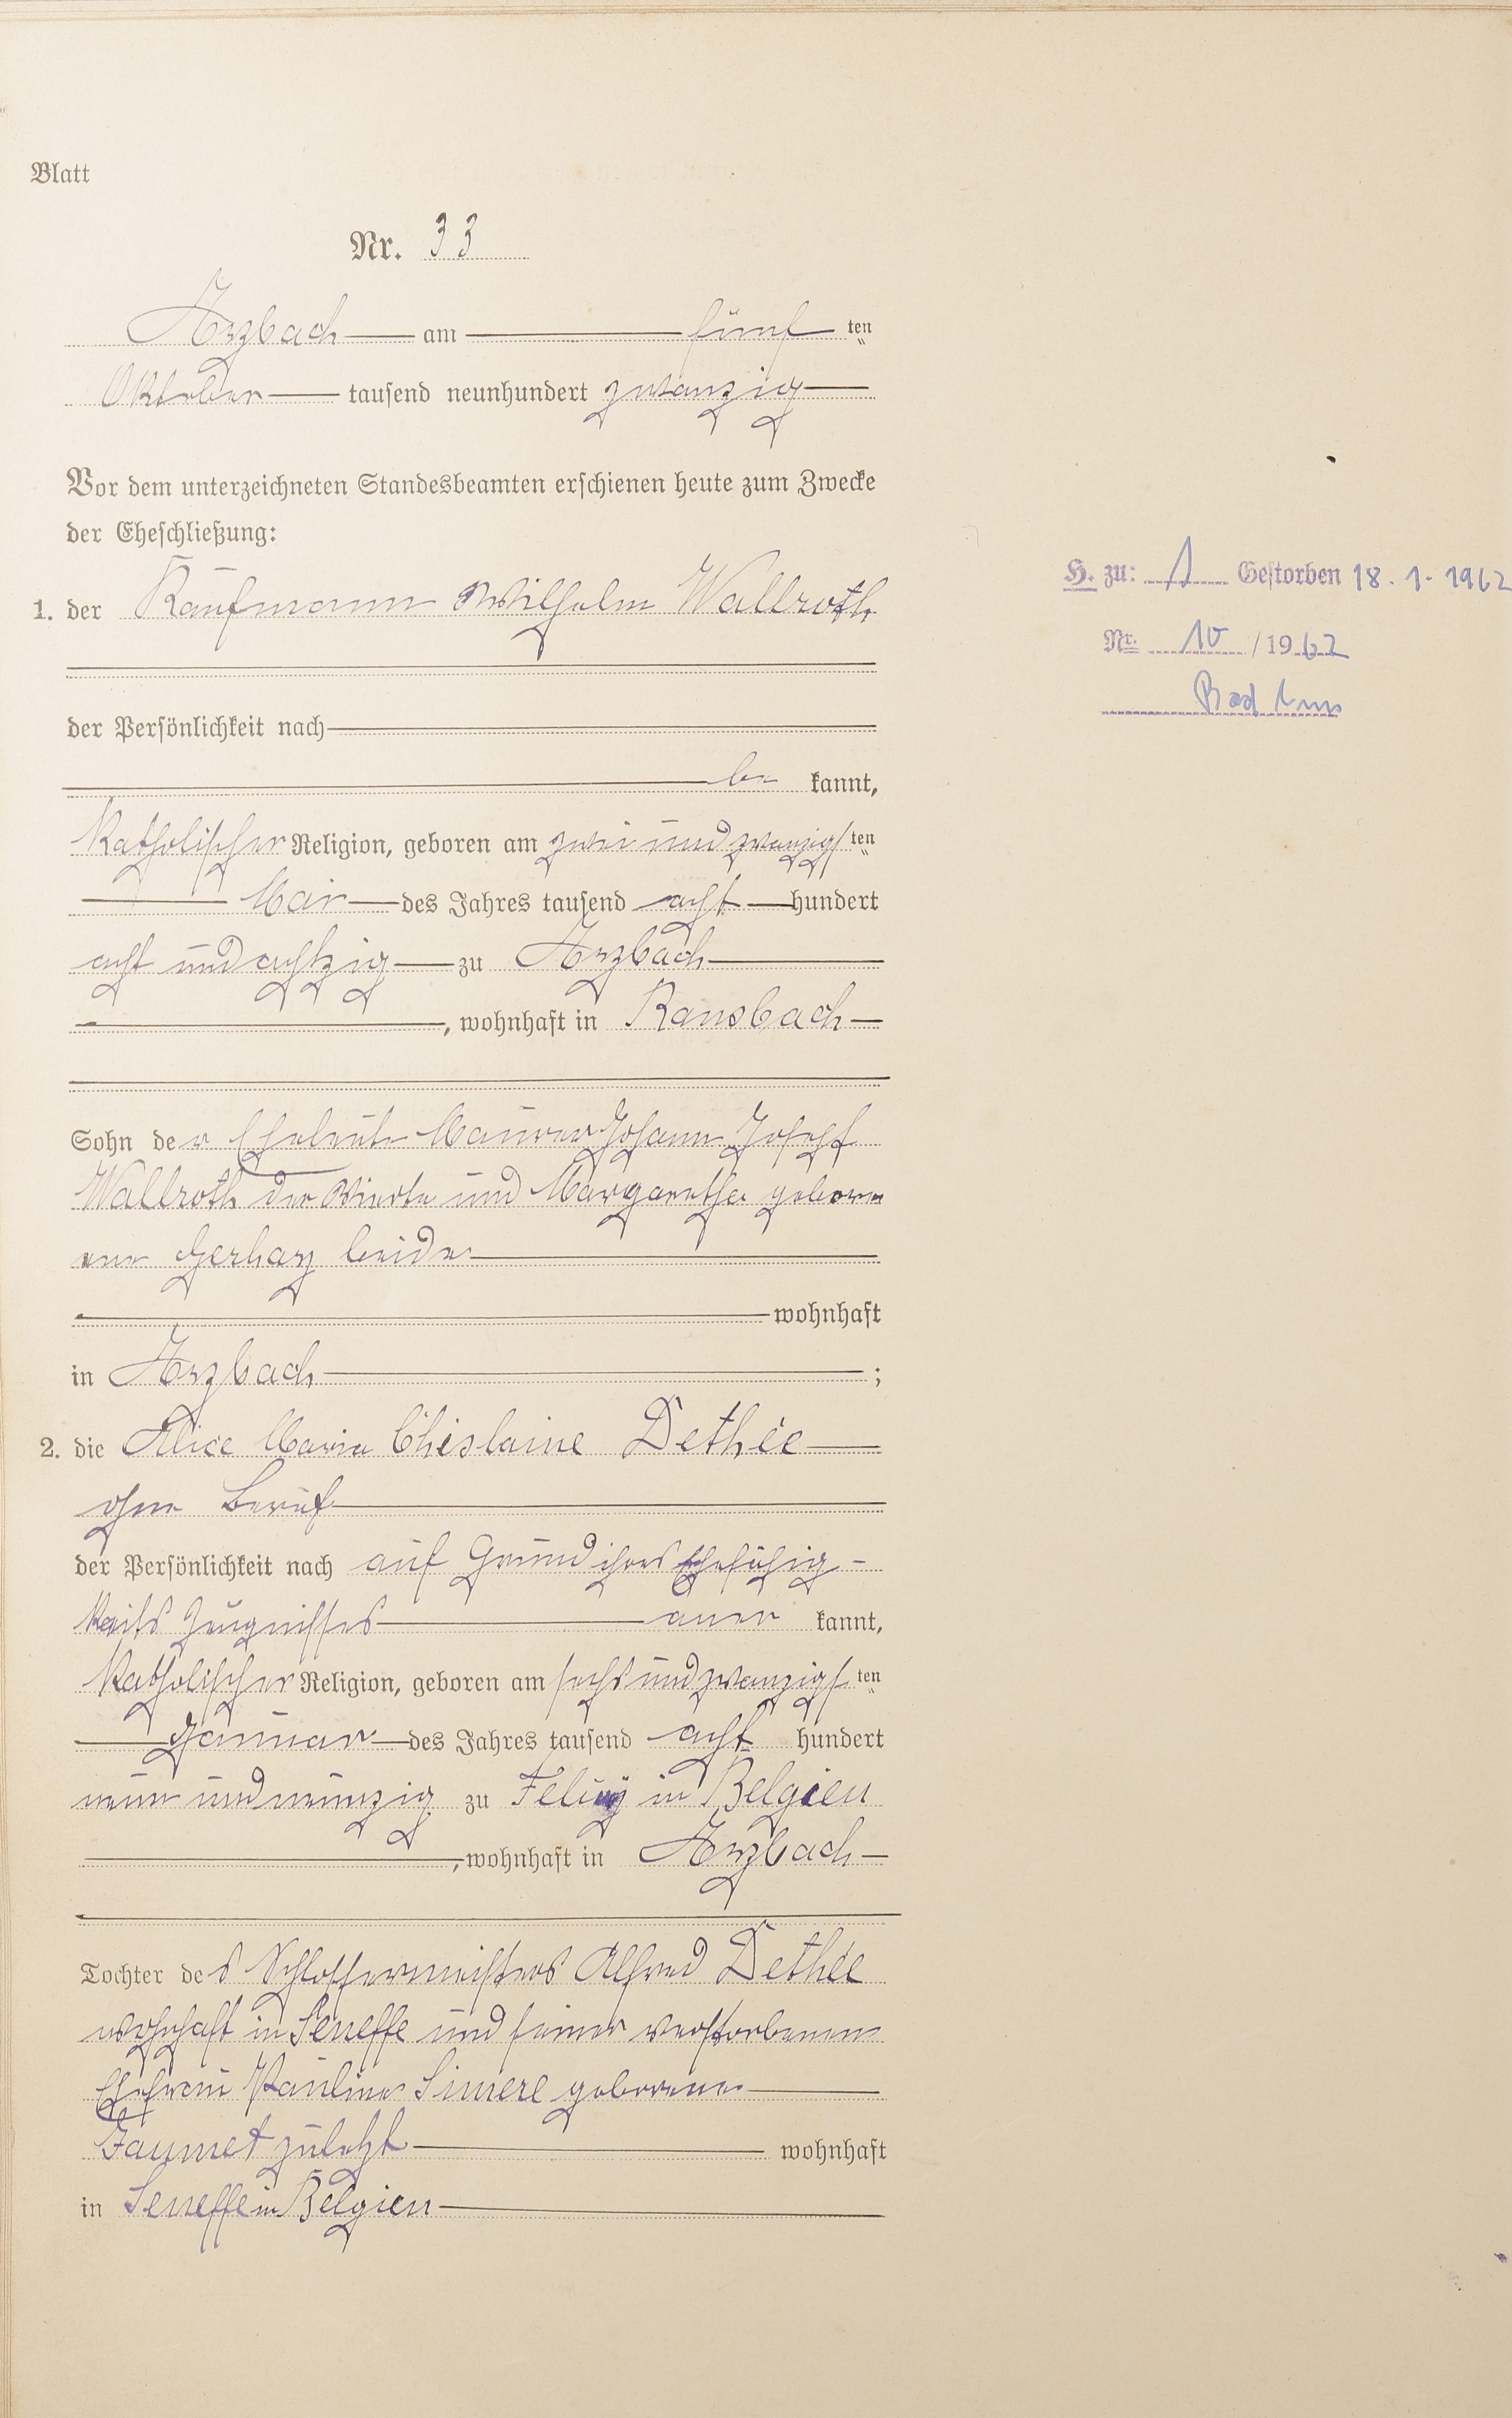 Blatt
Nr. 33
Arzbach am fünf ten
Oktober tausend neunhundert zwanzig
Vor dem unterzeichneten Standesbeamten erschienen heute zum Zwecke
der Eheschließung:
1. der Kaufmann Wilhelm Wallroth
der Persönlichkeit nach
be kannt,
Katholischer Religion, geboren am zwei und zwanzigs ten
Mai des Jahres tausend acht hundert
acht und achtzig zu Arzbach
, wohnhaft in Ransbach
Sohn der Eheleute Maurer Johann Josef
Wallroth der Vierte und Margaretha gebore
ne Gerharz beide
wohnhaft
in Arzbach ;
2. die Alice Maria Ghislaine Dethée
ohne Beruf
der Persönlichkeit nach auf Grund ihres Ehefähig-
keits Zeugnisses aner kannt,
Katholischer Religion, geboren am sechs und zwanzigs ten
Januar des Jahres tausend acht hundert
neun und neunzig zu Feluy in Belgien
, wohnhaft in Arzbach
Tochter des Schlossermeisters Alfred Dethée
wohnhaft in Seneffe und seiner verstorbenen
Ehefrau Pauline geborene
zuletzt wohnhaft
in Seneffe in Belgien
H. zu: 1 Gestorben 18.1.1962
Nr. 10 / 1962
Bad Ems